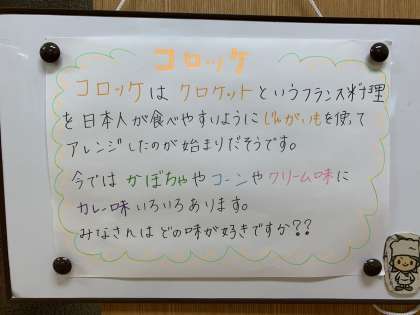 コロッケ
コロッケは クロケットというフランス料理
を 日本人が食べやすいように じゃがいもを使って
アレンジしたのが 始まりだそうです。
今では かぼちゃや コーンや クリーム味に
カレー味 いろいろあります。
みなさんは どの味が好きですか??